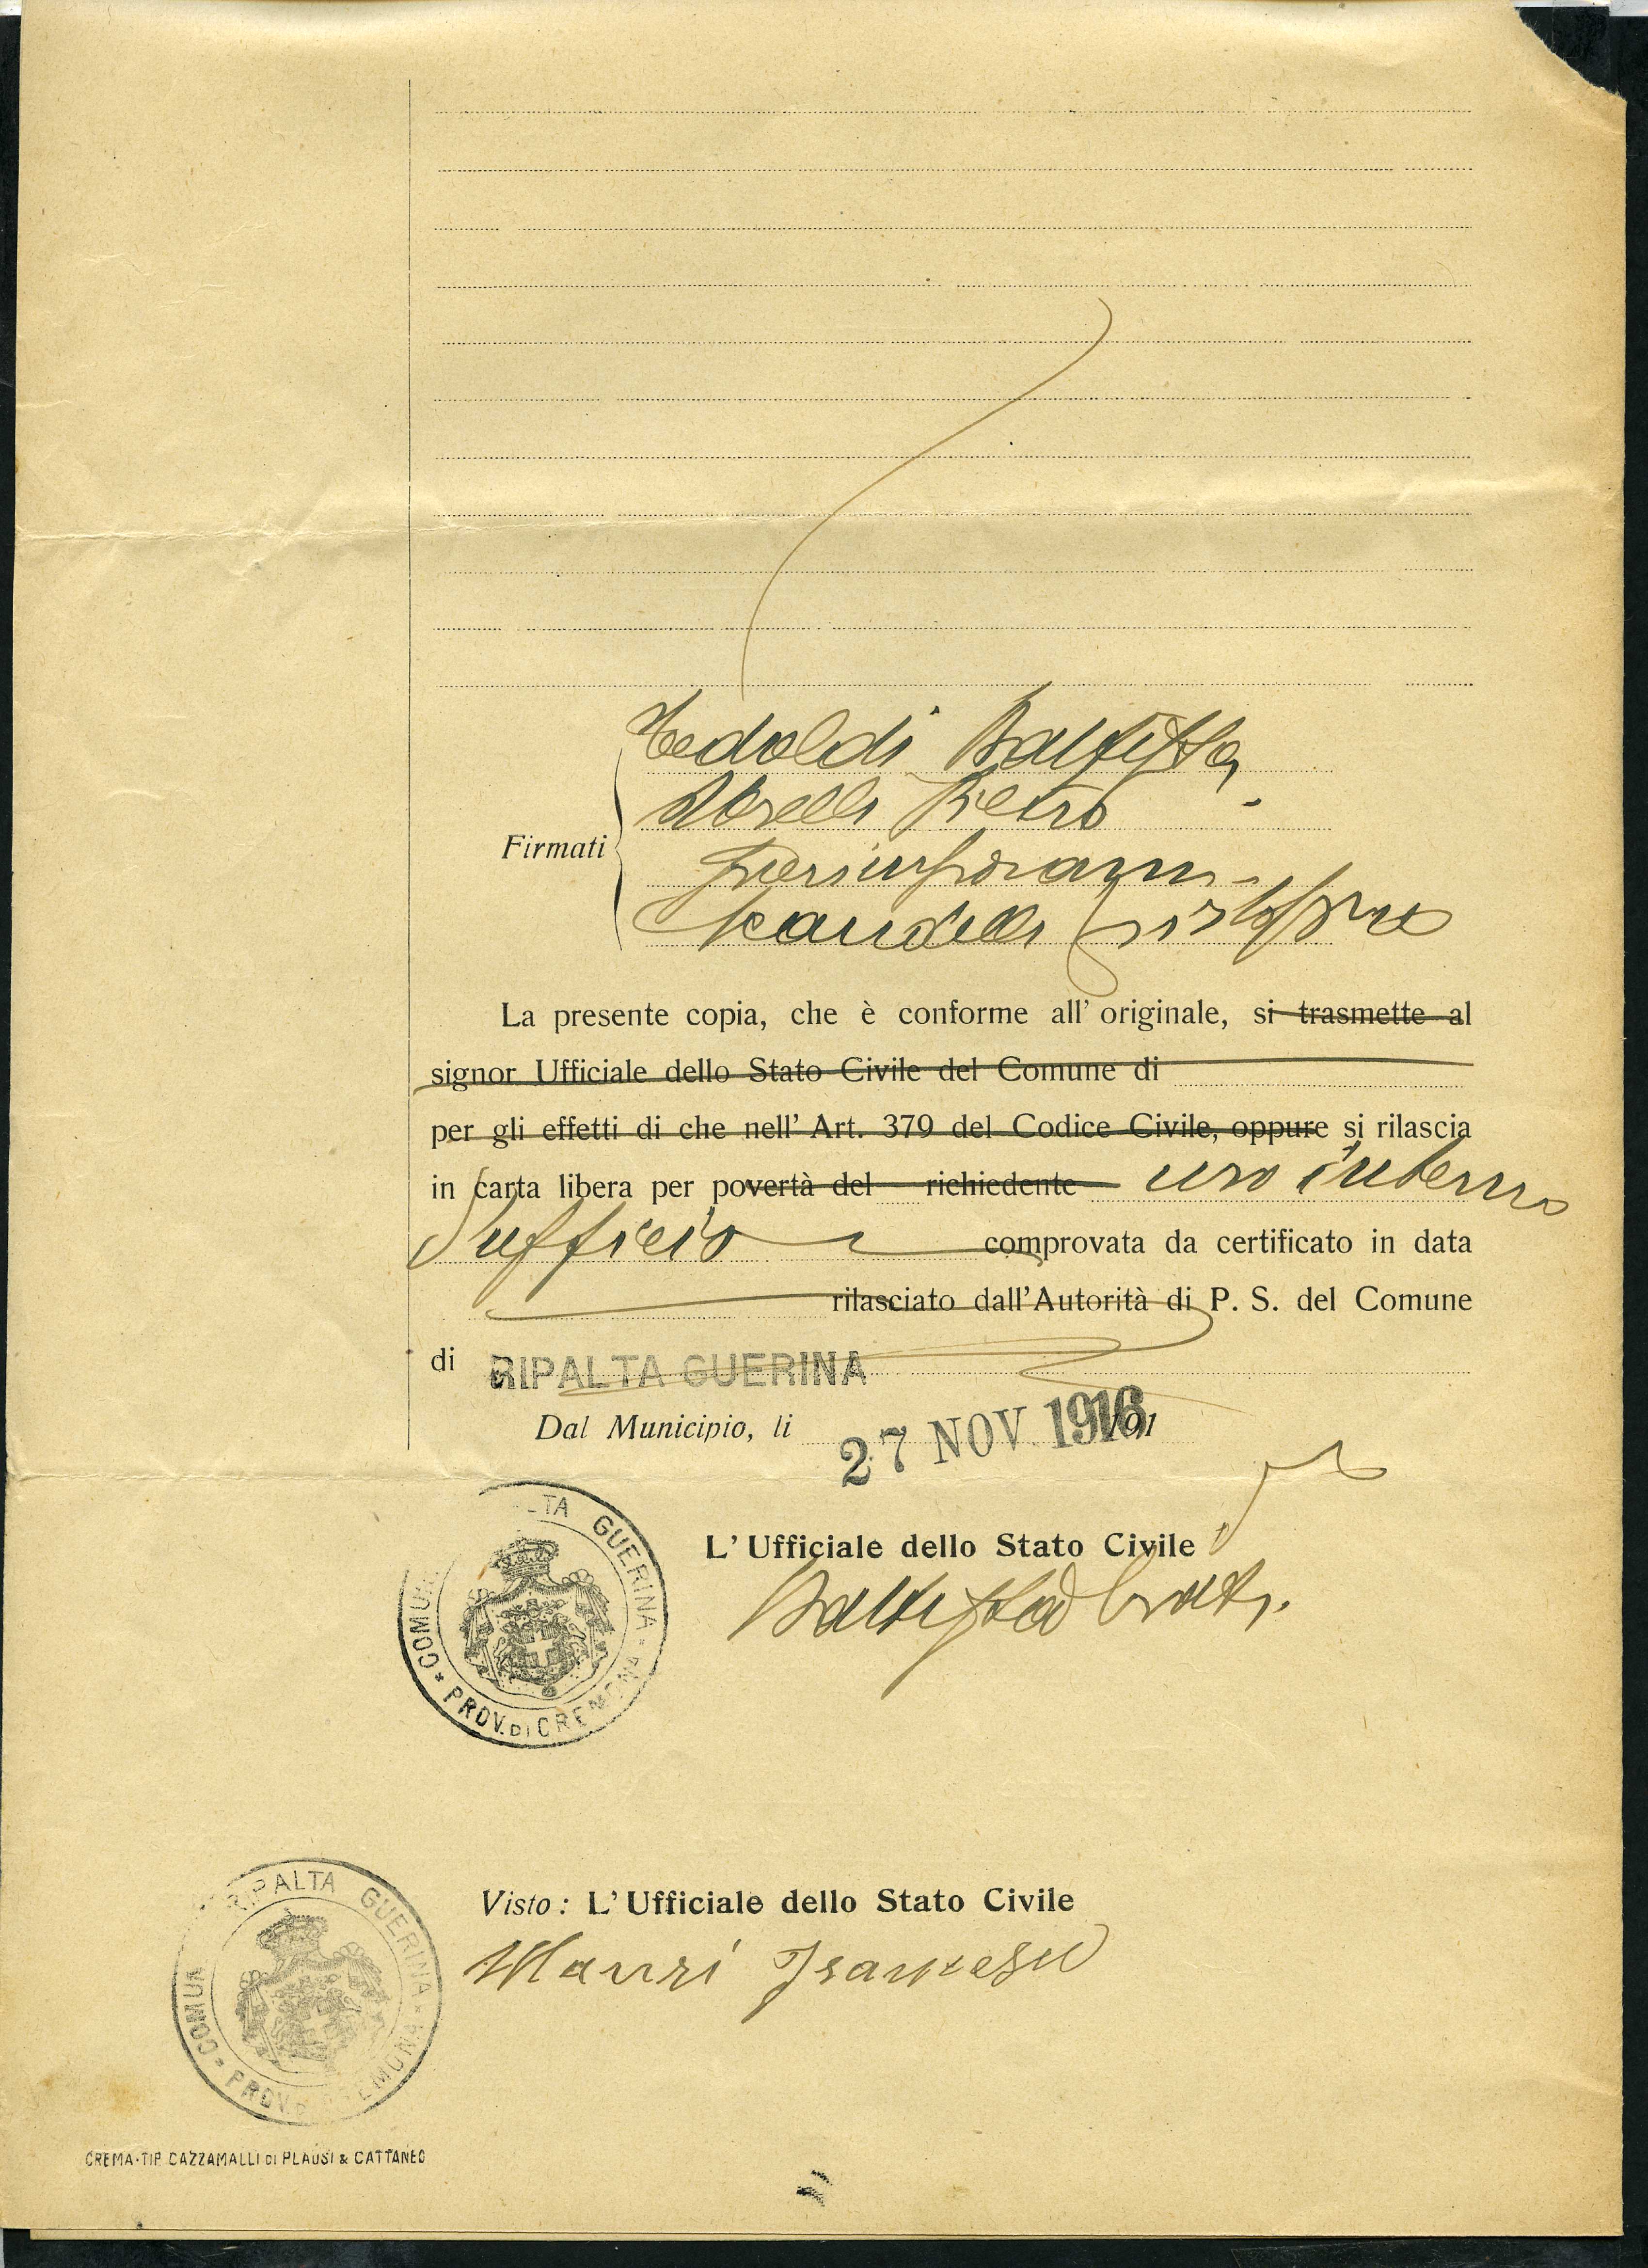 Tedoldi Battista
Pietro
Firmati
Scandelli
La presente copia, che è conforme all' originale, si trasmette al
signor Ufficiale dello Stato Civile del Comune di
per gli effetti di che nell' Art. 379 del Codice Civile, oppure si rilascia
in carta libera per povertà del richiedente uso interno
d'ufficio comprovata da certificato in data
rilasciato dall'Autorità di P. S. del Comune
di RIPALTA GUERINA
Dal Municipio, li 27 NOV. 1916 191
COMUN LTA GUERINA * PROV. DI CREMONA *
L' Ufficiale dello Stato Civile
Battista
COMUN RIPALTA GUERINA * PROV. DI CREMONA *
Visto: L' Ufficiale dello Stato Civile
Manzi Francesco
CREMA-TIP. CAZZAMALLI DI PLAUSI & CATTANEO